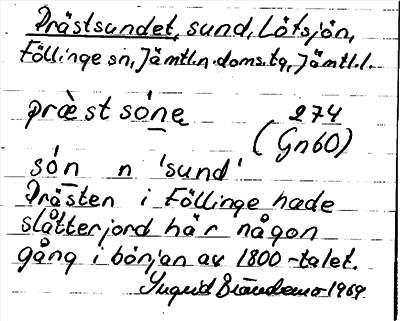 Prästsundet, sund, Lötsjön,
Föllinge sn, Jämtl.n.doms.tg, Jämtl.l.
præ̀st són̲e̲ 274
(Gn60)
són n 'sund'
Prästen i Föllinge hade
slåtterjord här någon
gång i början av 1800-talet.
Ingrid 1969